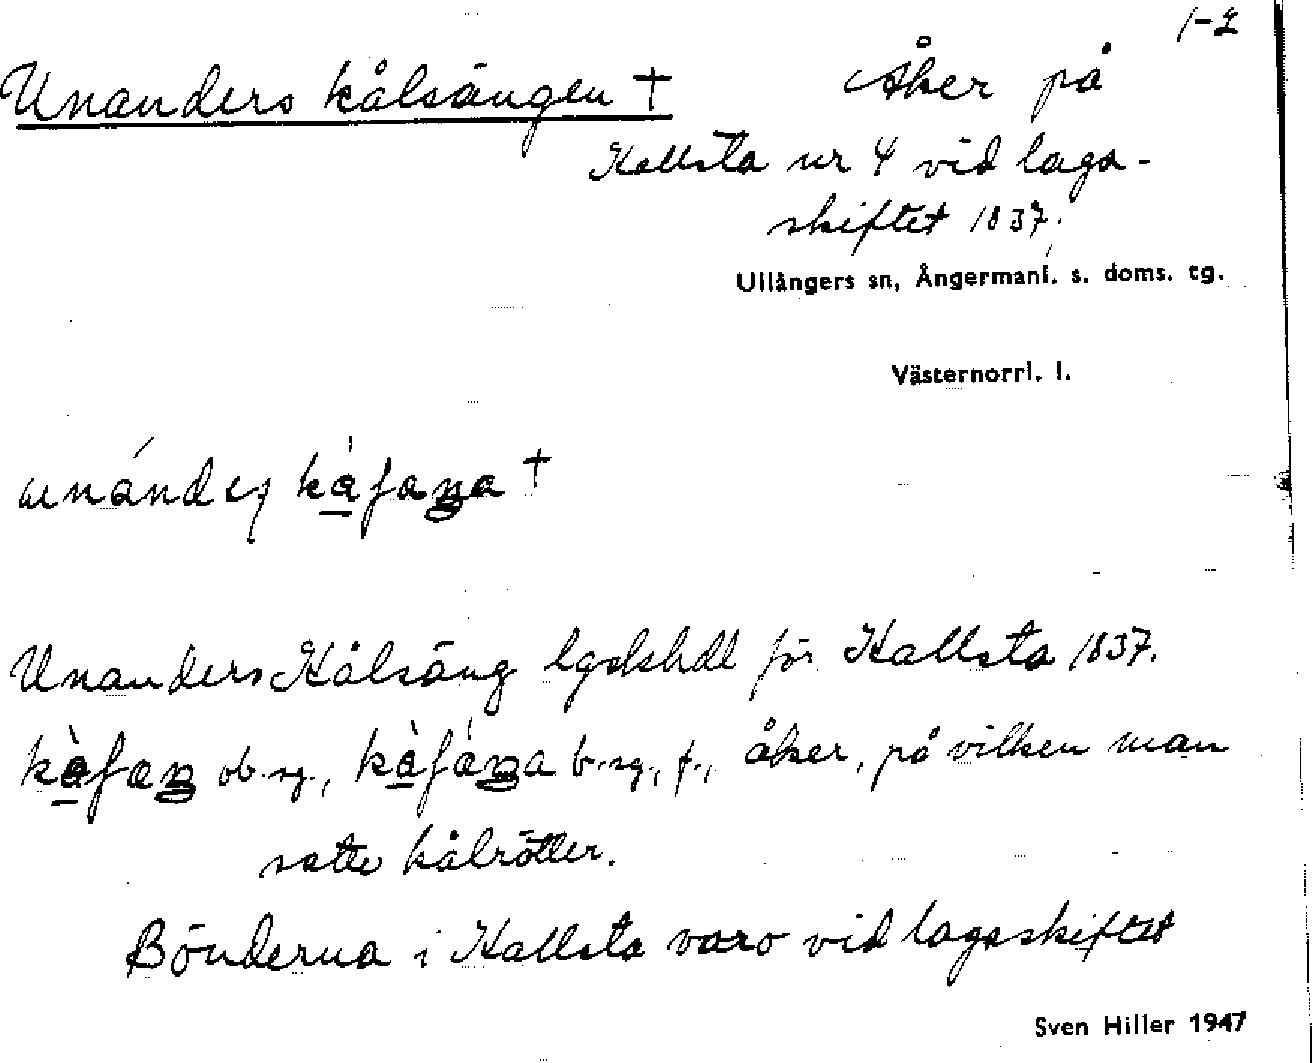 1-2
Unanders kålsängen †
Åker på
Kallsta nr 4 vid laga-
skiftet 1837.
Ullångers sn, Ångermanl. s. doms. tg.
Västernorrl. l.
†
Unanders Kålsäng lgskhdl för Kallsta 1837.
ob. sg., b. sg., f., åker, på vilken man
satte kålrötter.
Bönderna i Kallsta voro vid lagaskiftet
Sven Hiller 1947